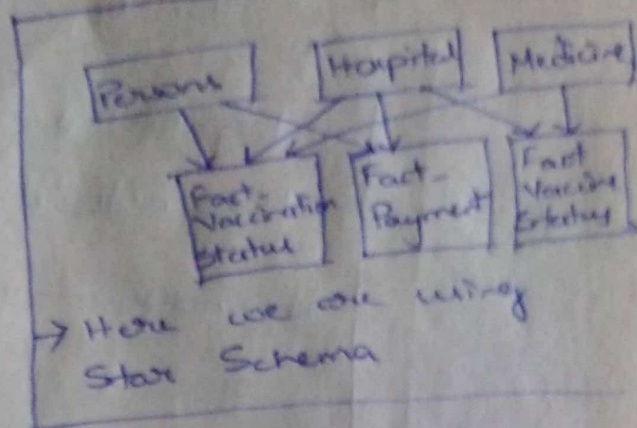 Persons
Hospital
Medicine
Fact_
Vaccination
Status
Fact_
Payment
Fact
Vaccine
Status
→ Here we are using
Star Schema